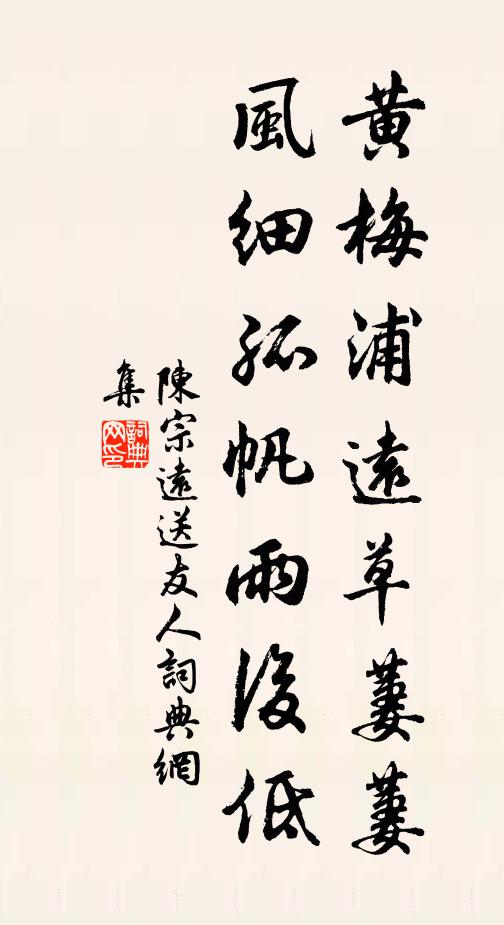 黄梅浦遠草萋萋
風細孤帆雨後低
陳宗遠送友人詞典網
集
詞典
网印